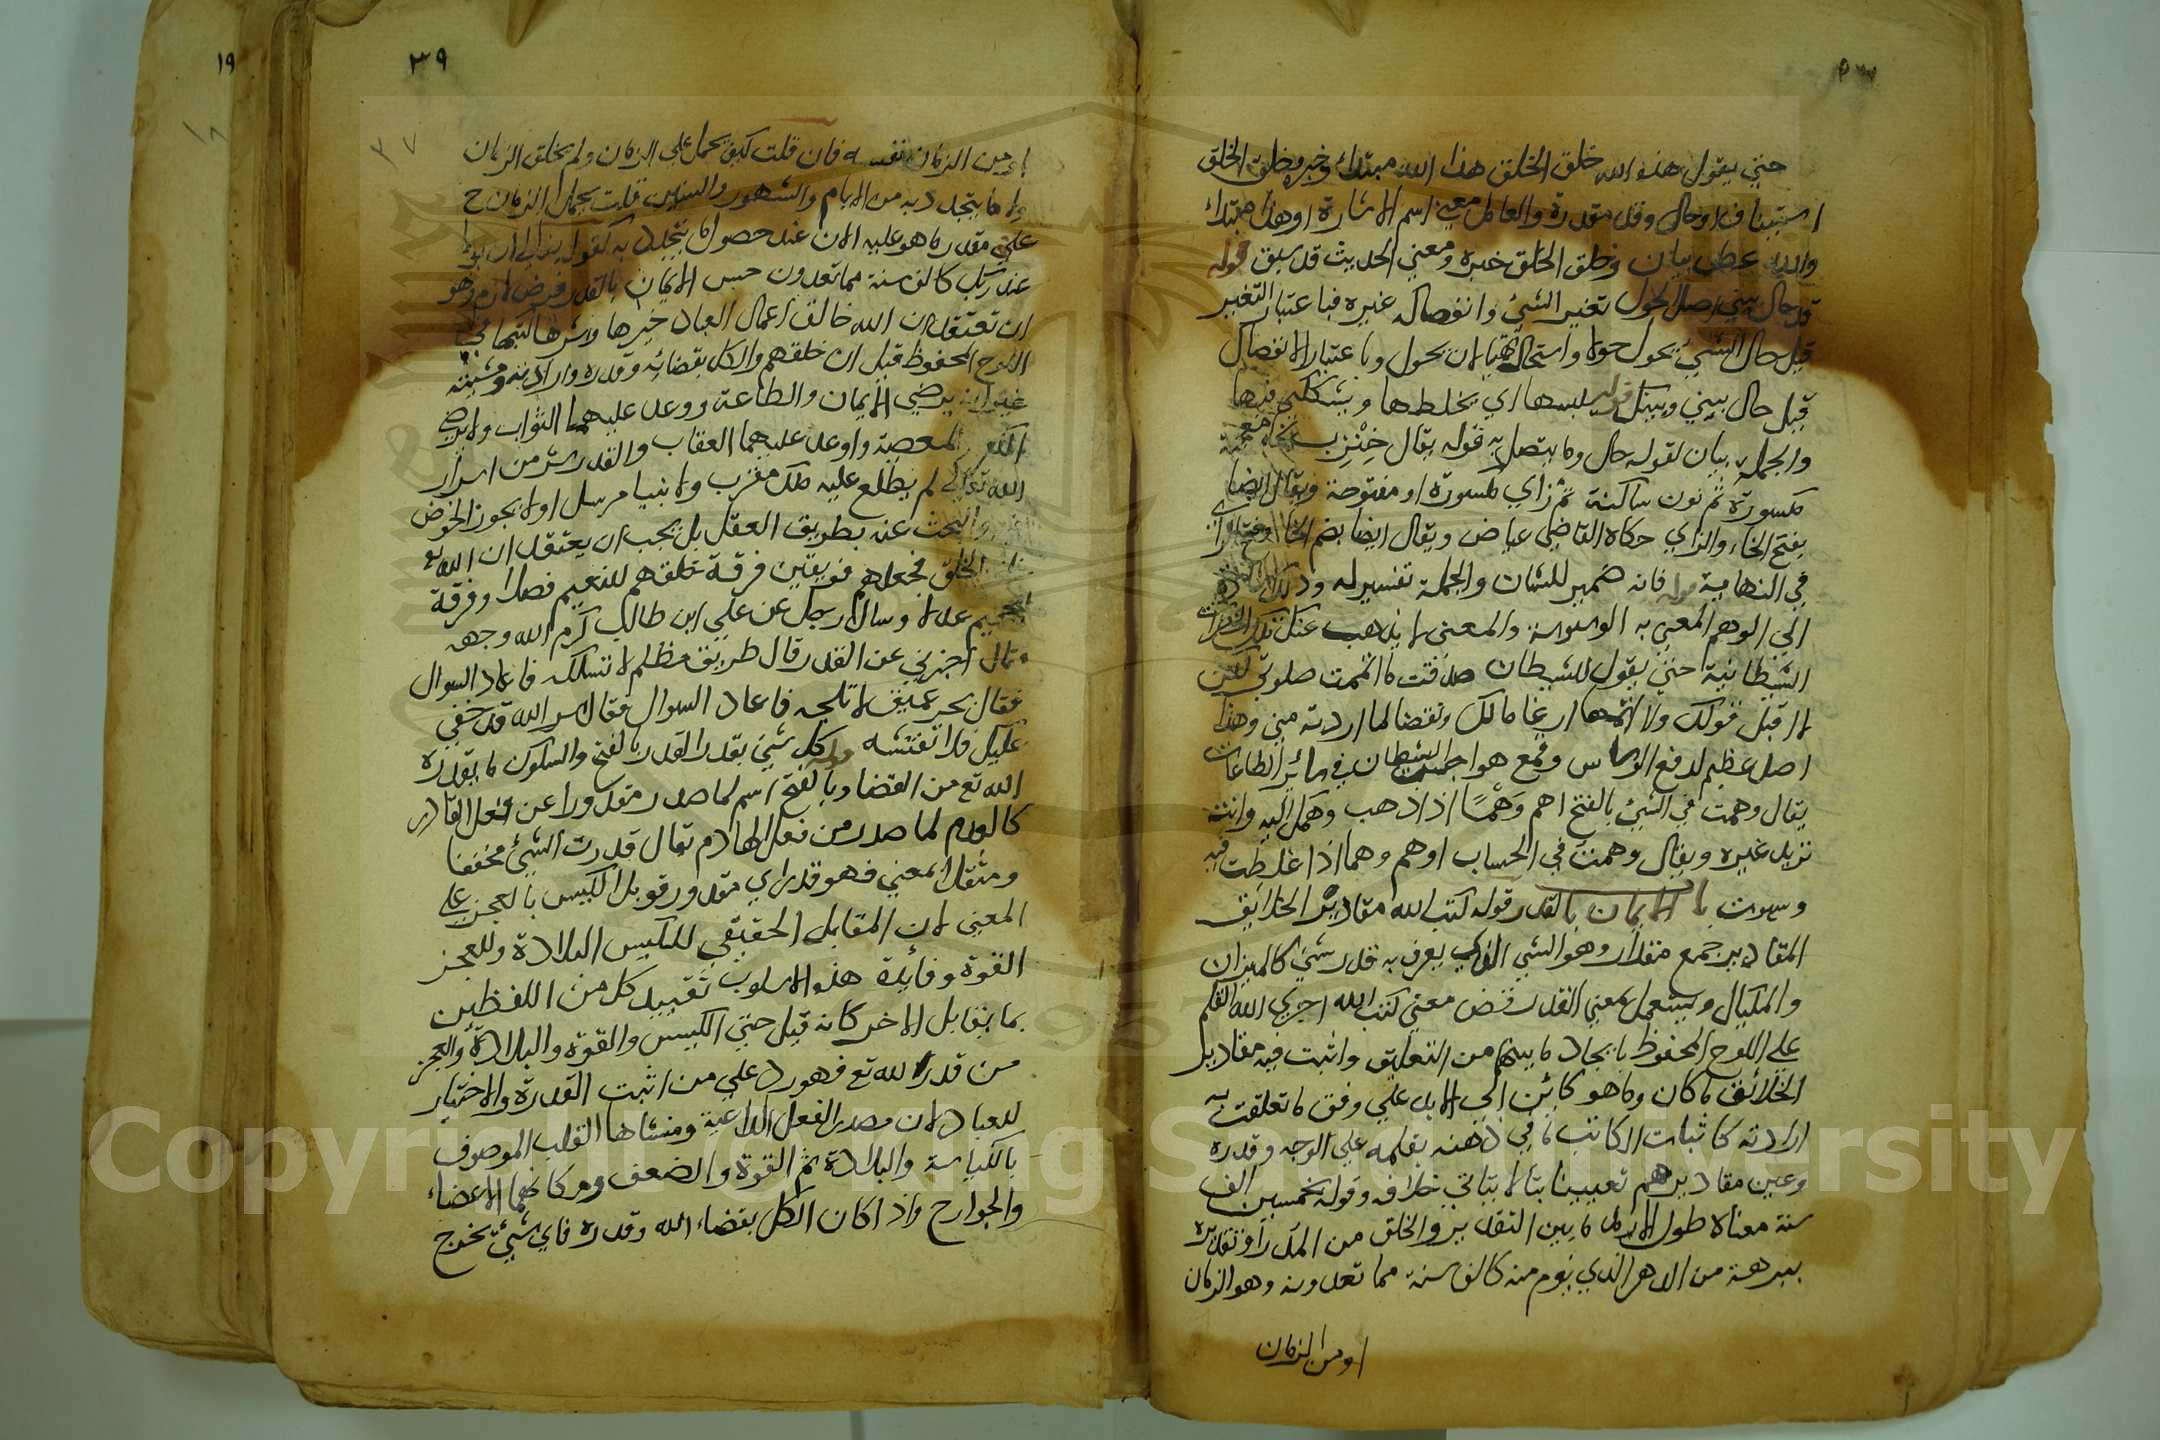 حتي يقول هذه الله خلق الخلق هذا الله مبتداء وخبر وخلق الخلق
استيناف او حال وقد مقدرة والعامل معني اسم الاشارة او هذا مبتداء
والله عطف بيان وخلق الخلق خبره ومعني الحديث قد سبق قوله
قد حال بيني اصل الحول تغير الشئ وانفصاله غيره فباعتبار التغير
قيل حال الشئ يحول حولا واستحال تهيا لان يحول وباعتبار الانفصال
قيل حال بيني وبينك قوله يلبسها اي يخلطها ويشككني فيها
والجملة بيان لقوله حال وما يتصل به قوله يقال خنزب بخاء معجمة
مكسورة ثم نون ساكنة ثم زاي مكسورة او مفتوحة ويقال ايضا
بفتح الخاء والزاي حكاه القاضي عياض ويقال ايضا بضم الخاء وفتح الزاي
في النهاية قوله فانه ضمير للشان والجملة تفسير له وذلك اشارة
الي الوهم المعني به الوسوسة والمعني لا يذهب عنك تلك الخطرات
الشيطانية حتي يقول للشيطان صدقت ما اتممت صلوتي لكن
لا اقبل قولك ولا اتمها ارغاما لك ونقضا لما اردته مني وهذا
اصل عظيم لدفع الوسواس وقمع هواجس الشيطان في سائر الطاعات
يقال وهمت في الشئ بالفتح اهم وَهْمًا اذا ذهب وهمك اليه وانت
تريد غيره ويقال وهمت في الحساب اوهم وهما اذا غلطت فيه
وسهوت باب الايمان بالقدر قوله كتب الله مقادير الخلائق
المقادير جمع مقدار وهو الشي الذي يعرف به قدر شئ كالميزان
والمكيال ويستعمل بمعني القدر معني كتب الله اجري الله القلم
علي اللوح المحفوظ بايجاد ما بينهما من التعليق واثبت فيه مقادير
الخلائق ما كان وما هو كائن الي الابد علي وفق ما تعلقت به
ارادته كاثبات الكاتب ما في ذهنه بقلمه علي الوجه وقدره
وعين مقاديرهم تعيينا بتا لا يتاتي خلافه وقوله بخمسين الف
سنة معناه طول الامد ما بين التقدير والخلق من المدد او تقديره
ببرهة من الدهر الذي يوم منه كالف سنة مما تعدون وهو الزمان
او من الزمان
٣٩
او من الزمان نفسه فان قلت كيف يحمل علي الزمان ولم يخلق الزمان
ولا ما يتجدد به من الايام والشهور والسنين قلت يحمل الزمان ح
علي مقدر ما هو عليه الان عند حصول ما يتجدد به كقوله تعالي ان يوما
عند ربك كالف سنة مما تعدون حسن الايمان بالقدر فرض لازم وهو
ان تعتقد ان الله خالق اعمال العباد خيرها وشرها كتبها في
اللوح المحفوظ قبل ان خلقهم والكل بقضائه وقدره وارادته ومشيئته
غير انه يرضي الايمان والطاعة ووعد عليهما الثواب ولا يرضي
الكفر والمعصية واوعد عليهما العقاب والقدر سر من اسرار
الله تعالي لم يطلع عليه ملك مقرب ولا نبيا مرسل اولا يجوز الخوض
فيه والبحث عنه بطريق العقل بل يجب ان يعتقد ان الله تع
خلق الخلق فجعلهم فريقين فرقة خلقهم للنعيم فضلا وفرقة
للجحيم عدلا وسال رجل عن علي ابن طالب كرم الله وجهه
فقال اخبرني عن القدر قال طريق مظلم لا تسلكه فاعاد السوال
فقال بحر عميق لا تلجه فاعاد السوال فقال سر الله قد خفي
عليك فلا تفتشه قوله كل شئ بقدر القدر بالفتح والسكون ما يقدره
الله تع من القضا وبالفتح اسم لما صدر مقدورا عن فعل القادر
كالهدم لما صدر من فعل الهادم يقال قدرت الشئ مخففا
ومثقلا بمعني فهو قدر اي مقدور قوبل الكيس بالعجز علي
المعني لان المقابل الحقيقي للكيس البلادة وللعجز
القوة وفائدة هذه الاسلوب تقييد كل من اللفظين
بما يقابل الاخر كانه قيل حتي الكيس والقوة والبلادة والعجز
من قدر الله تع فهو رد علي من اثبت القدرة والاختيار
للعباد لان مصدر الفعل الداعية ومنشاها القلب الموصوف
بالكياسة والبلادة ثم القوة والضعف ومكانهما الاعضاء
والجوارح واذا كان الكل بقضاء الله وقدره فاي شئ يخرج
١٩
Copyright © King Saud University